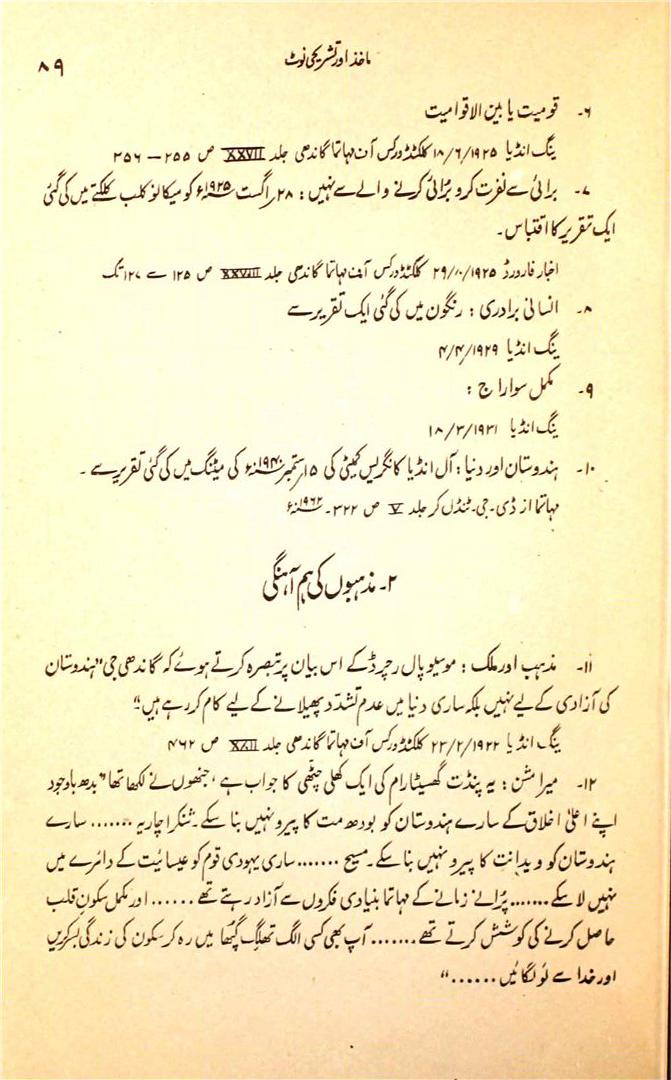 ماخذ اور تشریحی نوٹ ۸۹
۶۔ قومیت یا بین الاقوامیت
ینگ انڈیا ۱۸/۶/۱۹۲۵ کلکٹڈ ورکس آف مہاتما گاندھی جلد XXVII ص ۲۵۵ – ۲۵۶
۷۔ برائی سے نفرت کرو بُرائی کرنے والے سے نہیں: ۲۸؍اگست ۱۹۲۵ء کو میکانو کلب کلکتے میں کی گئی
ایک تقریر کا اقتباس۔
اخبار فارورڈ ۲۹/۱۰/۱۹۲۵ کلکٹڈ ورکس آف مہاتما گاندھی جلد XXVIII ص ۱۲۵ سے ۱۲۷ تک
۸۔ انسانی برادری: رنگون میں کی گئی ایک تقریر سے
ینگ انڈیا ۴/۴/۱۹۲۹
۹۔ مکمل سواراج:
ینگ انڈیا ۱۸/۳/۱۹۳۱
۱۰۔ ہندوستان اور دنیا: آل انڈیا کانگریس کمیٹی کی ۱۵؍ستمبر ۱۹۴۰ء کی میٹنگ میں کی گئی تقریر سے۔
مہاتما از ڈی۔جی۔ٹنڈل کر جلد V ص ۳۲۲۔ ۱۹۶۲ء
۲۔ مذہبوں کی ہم آہنگی
۱۱۔ مذہب اور ملک: موسیو پال رچرڈ کے اس بیان پر تبصرہ کرتے ہوئے کہ گاندھی جی "ہندوستان
کی آزادی کے لیے نہیں بلکہ ساری دنیا میں عدم تشدد پھیلانے کے لیے کام کر رہے ہیں"
ینگ انڈیا ۲۳/۲/۱۹۲۲ کلکٹڈ ورکس آف مہاتما گاندھی جلد XXII ص ۴۶۲
۱۲۔ میرا مشن: یہ پنڈت گھسیٹا رام کی ایک کھلی چٹھی کا جواب ہے، جنھوں نے لکھا تھا "بدھ باوجود
اپنے اعلیٰ اخلاق کے سارے ہندوستان کو بودھ مت کا پیرو نہیں بنا سکے۔ شنکر اچاریہ ...... سارے
ہندوستان کو ویدانت کا پیرو نہیں بنا سکے۔ مسیح ....... ساری یہودی قوم کو عیسائیت کے دائرے میں
نہیں لا سکے ....... پرانے زمانے کے مہاتما بنیادی فکروں سے آزاد رہتے تھے ...... اور مکمل سکون قلب
حاصل کرنے کی کوشش کرتے تھے ....... آپ بھی کسی الگ تھلگ گپُھا میں رہ کر سکون کی زندگی بسر کریں
اور خدا سے لَو لگائیں ......"